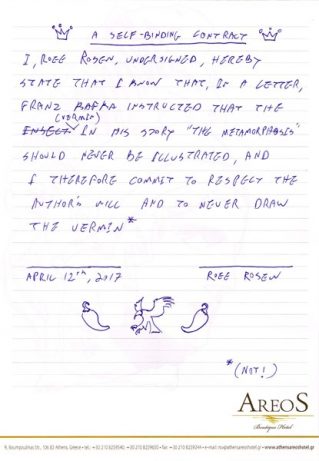 A SELF-BINDING CONTRACT
I, ROEE ROSEN, UNDERSIGNED, HEREBY
STATE THAT I KNOW THAT, IN A LETTER,
FRANZ KAFKA INSTRUCTED THAT THE
(VERMIN)
INSECT IN HIS STORY "THE METAMORPHOSIS"
SHOULD NEVER BE ILLUSTRATED, AND
I THEREFORE COMMIT TO RESPECT THE
AUTHOR'S WILL AND TO NEVER DRAW
THE VERMIN*
APRIL 12TH, 2017 ROEE ROSEN
*(NOT!)
AREOS
Boutique Hotel
Str., Athens, Greece • tel.: • fax: • e-mail: • www.athensareoshotel.gr